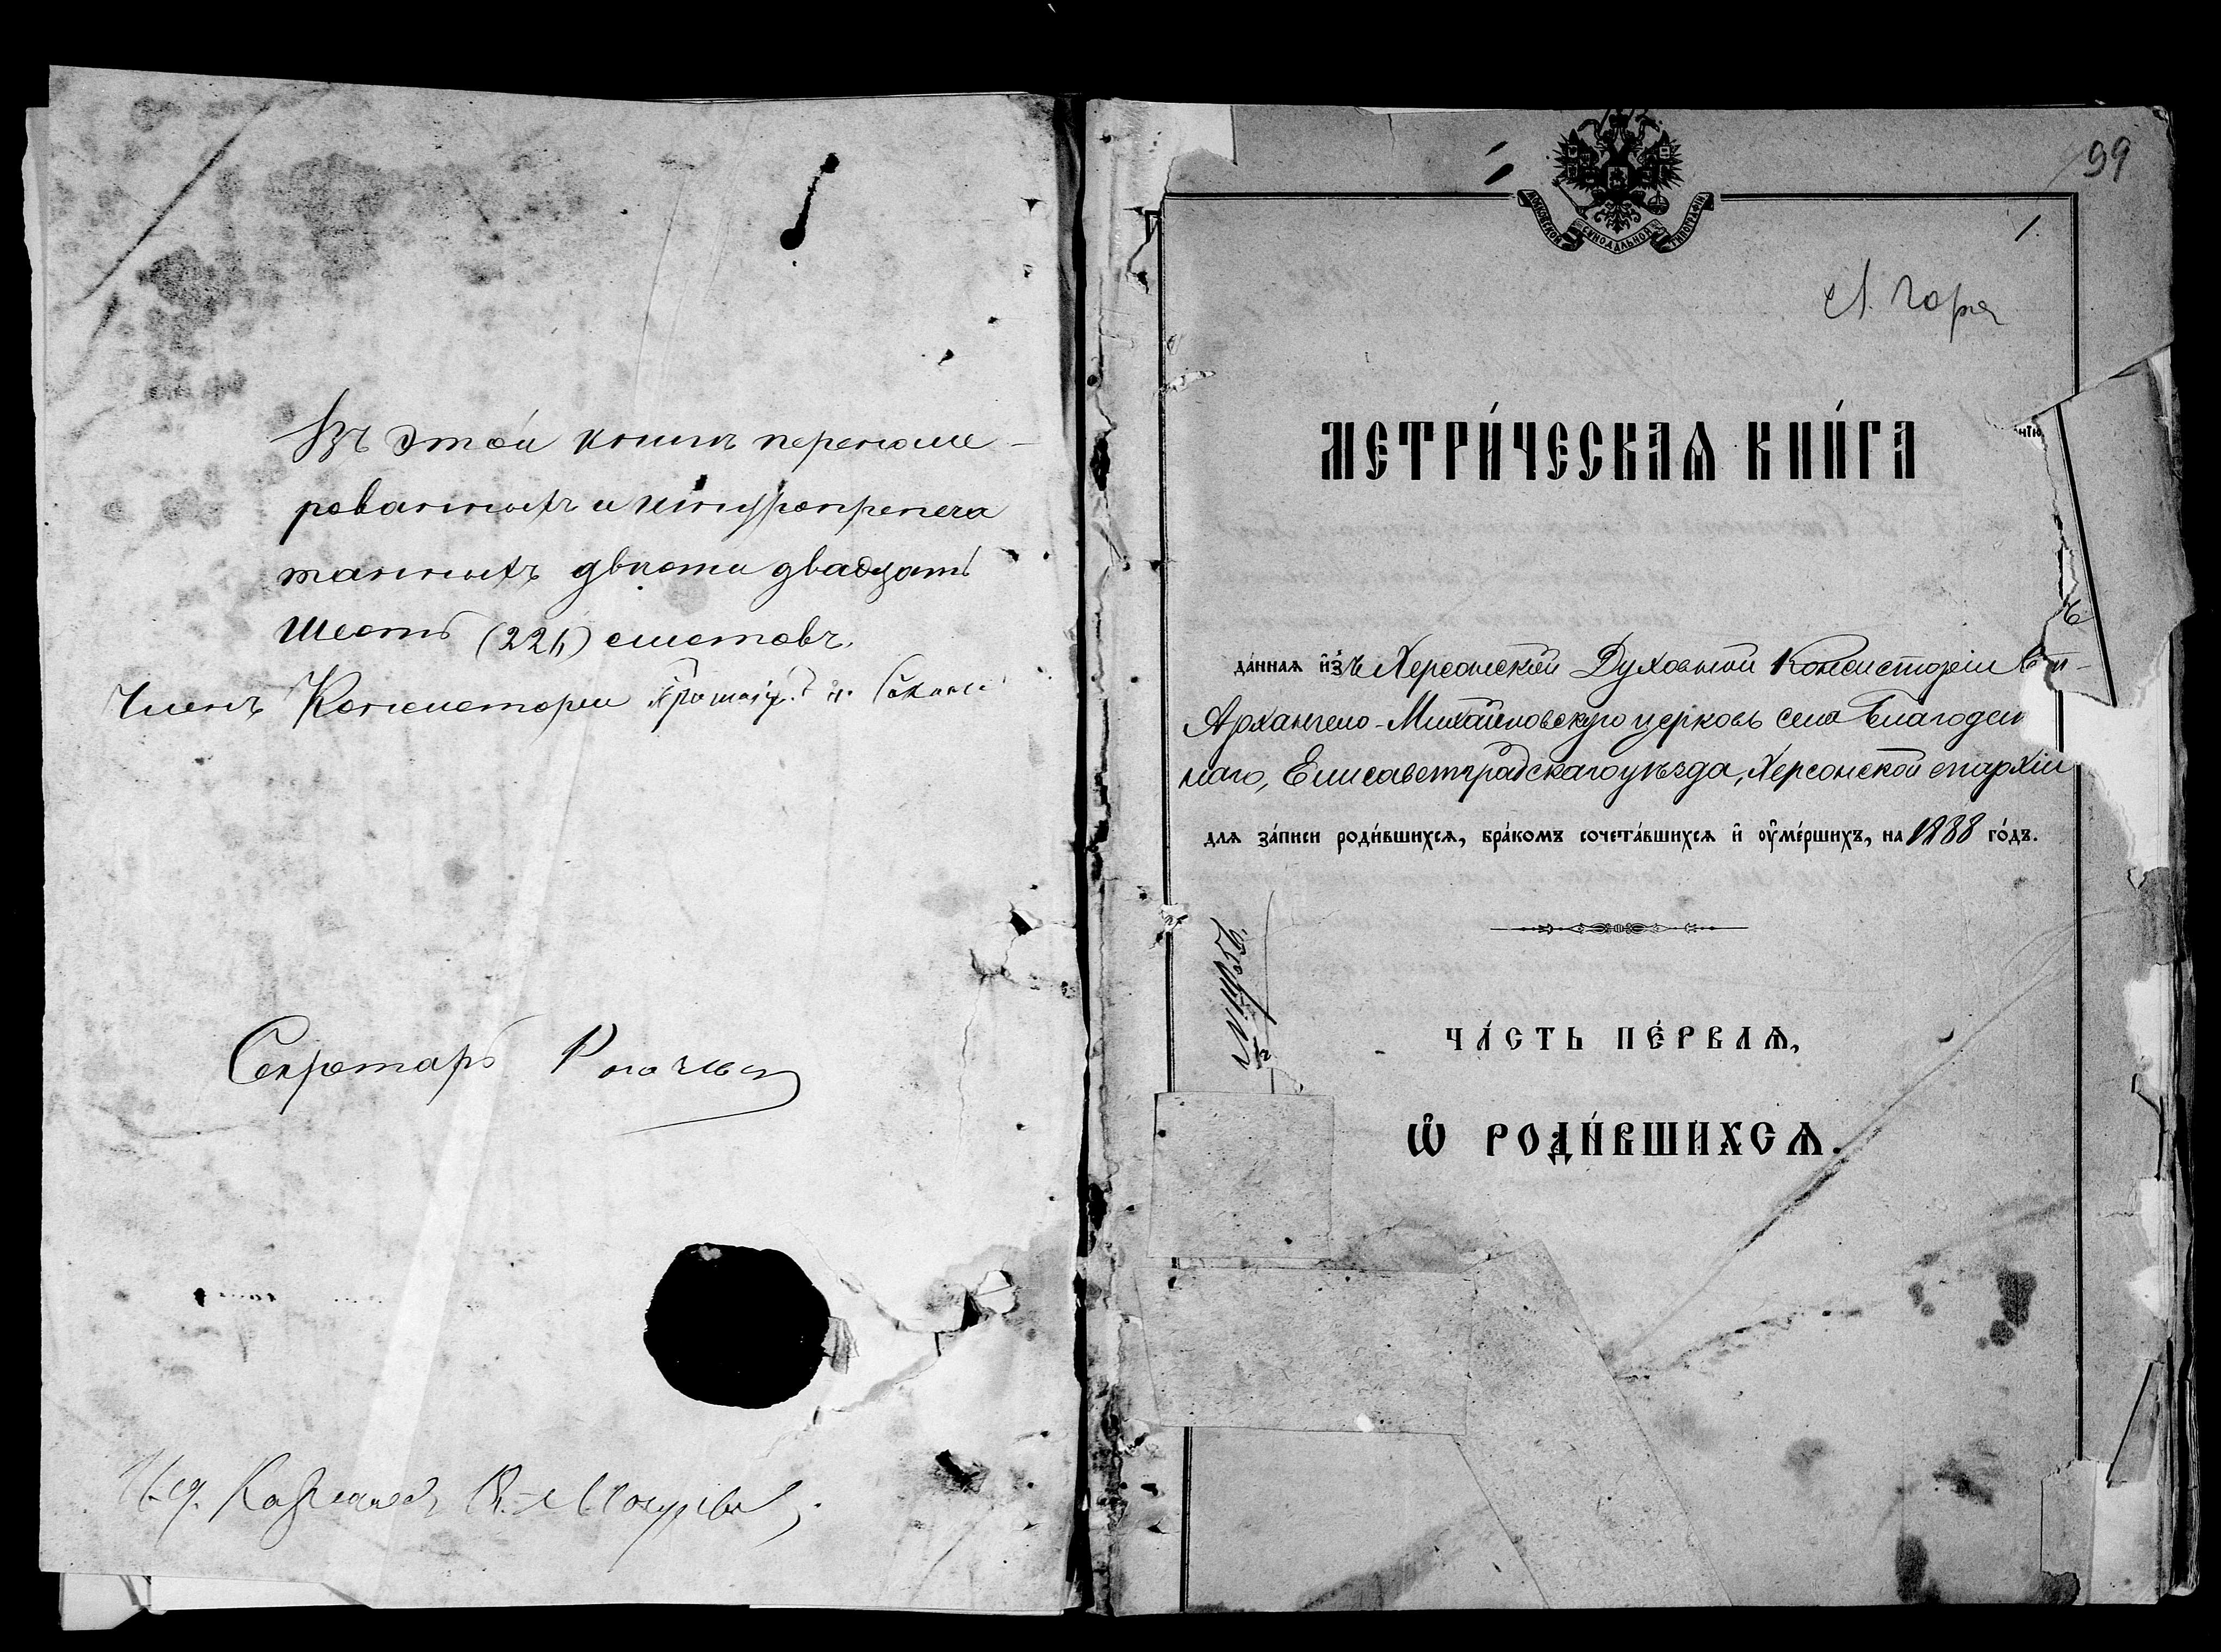 Въ этой книгѣ перенуме-
рованныхъ и шнуропрепеча
танныхъ двѣсти двадцать
шесть (226) листовъ.
Членъ Консисторіи
Секретарь
99
1
МОСКОВСКОЙ СѴНОДАЛЬНОЙ ТИПОГРАФІИ
Л. Гора
МЕТРИ́ЧЕСКАѦ КНИ́ГА
да́ннаѧ и҆з̾ъ Херсонской Духовной Консисторіи въ
Архангело-Михайловскую церковь села Благодат
наго, Елисаветградскаго уѣзда, Херсонской епархіи
длѧ за́писи роди́вшихсѧ, бра́комъ сочета́вшихсѧ и҆ ᲂу҆ме́ршихъ, на 1888 го́дъ.
ЧА́СТЬ ПЕ́РВАѦ,
Ѽ РОДИ́ВШИХСѦ.